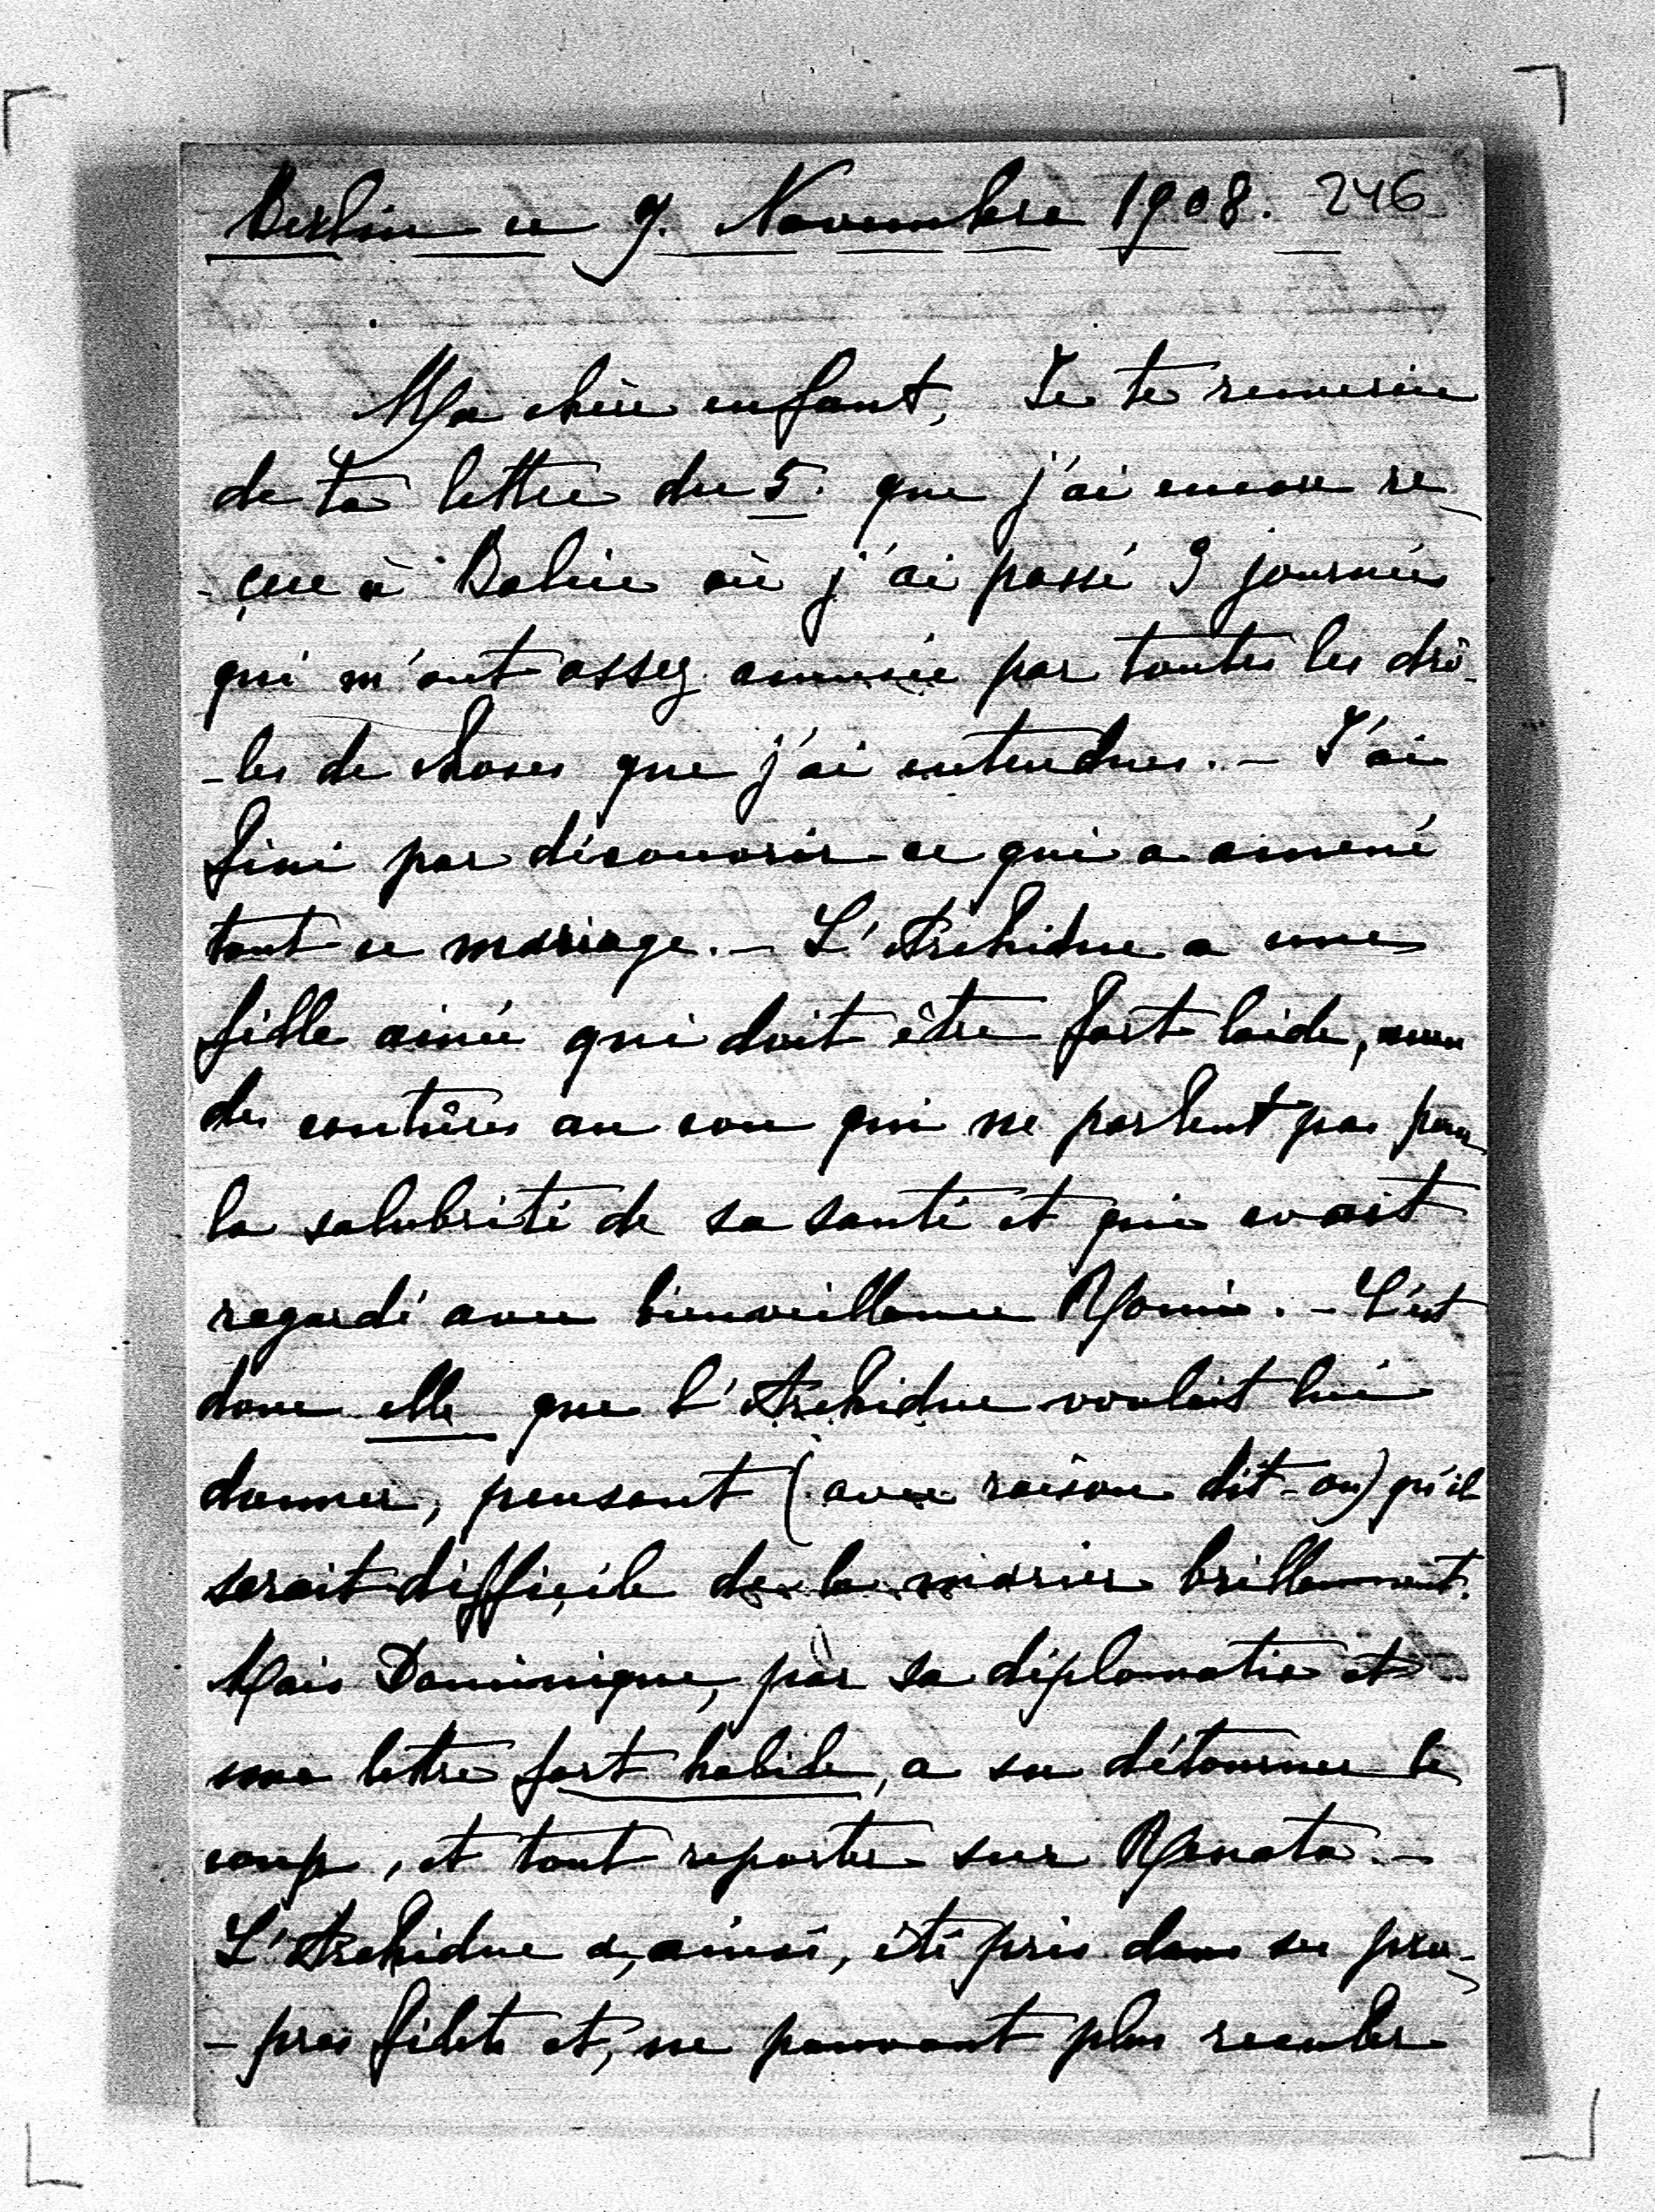 Berlin ce 9. Novembre 1908. 246
Ma chère enfant, Je te remercie
de ta lettre du 5. que j'ai encore re
-çue à Balice où j'ai passé 3 journées
qui m'ont assez amusée par toutes les drô-
-les de choses que j'ai entendues. - J'ai
fini par découvrir ce qui a amené
tout ce mariage. - L'Archiduc a une
fille ainée qui doit être fort laide, avec
des coutûres au cou qui ne parlent pas pour
la salubrité de sa santé et qui avait
regardé avec bienveillance - C'est
donc elle que l'Archiduc voulait lui
donner, pensant (avec raison dit-on) qu'il
serait difficile de la marier brillamment.
Mais Dominique, par sa diplomatie et
une lettre fort habile, a su détourner le
coup, et tout reporter sur Renata. -
L'Archiduc a, ainsi, été pris dans ses pro-
-pres filets et, ne pouvant plus reculer